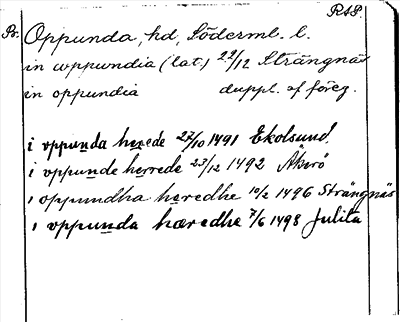 RAP.
Ps. Oppunda, hd, Söderml. l.
in wppwndia (lat.) 29/12 Strängnäs
in oppundia duppl. af föreg.
i vppunda herede 27/10 1491 Ekolsund.
i vppunde herrede 23/12 1492 Åkerö
i oppundha heredhe 10/2 1496 Strängnäs
i vppunda hæredhe 7/6 1498 Julita